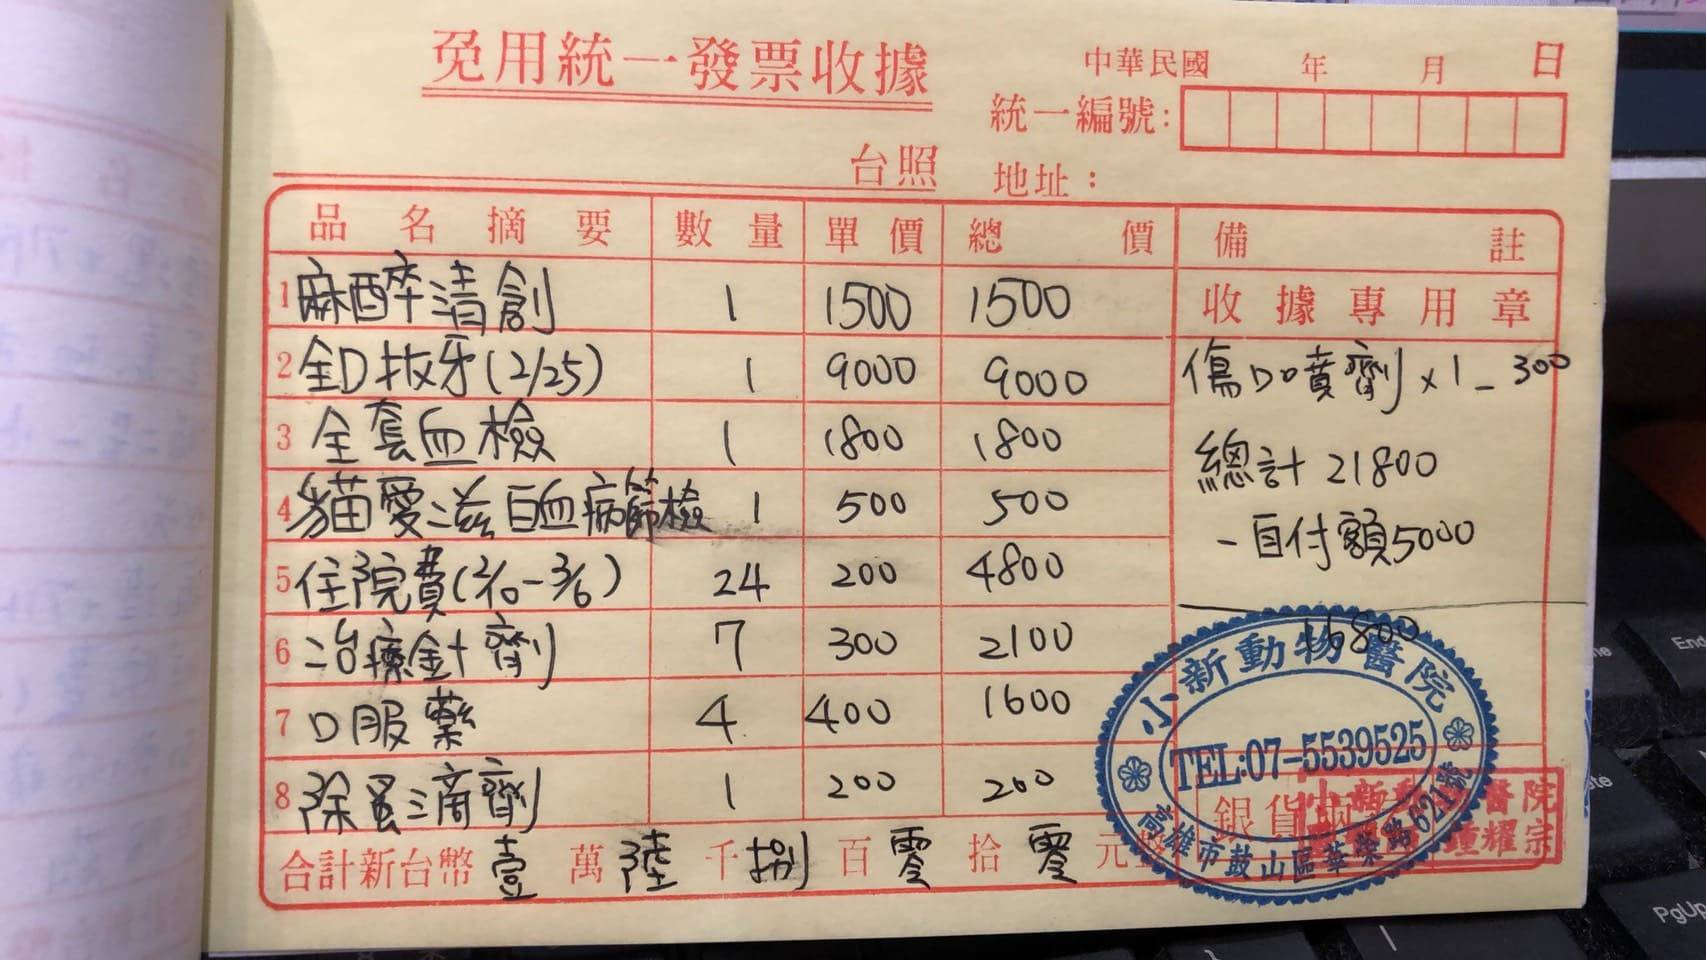 免用統一發票收據
中華民國 年 月 日
統一編號:
台照 地址:
品名摘要 數量 單價 總價 備註
1 麻醉清創 1 1500 1500 收據專用章
2 全口拔牙(2/25) 1 9000 9000 傷口噴劑×1-300
3 全套血檢 1 1800 1800 總計21800
4 貓愛滋白血病篩檢 1 500 500 -自付額5000
5 住院費(2/10-3/6) 24 200 4800
6 治療針劑 7 300 2100 16800
7 口服藥 4 400 1600
8 除蚤滴劑 1 200 200
合計新台幣壹萬陸千捌百零拾零元
小新動物醫院
TEL:07-5539525
高雄市鼓山區華榮路621號
銀貨兩
醫院
鍾耀宗
End
PgUp